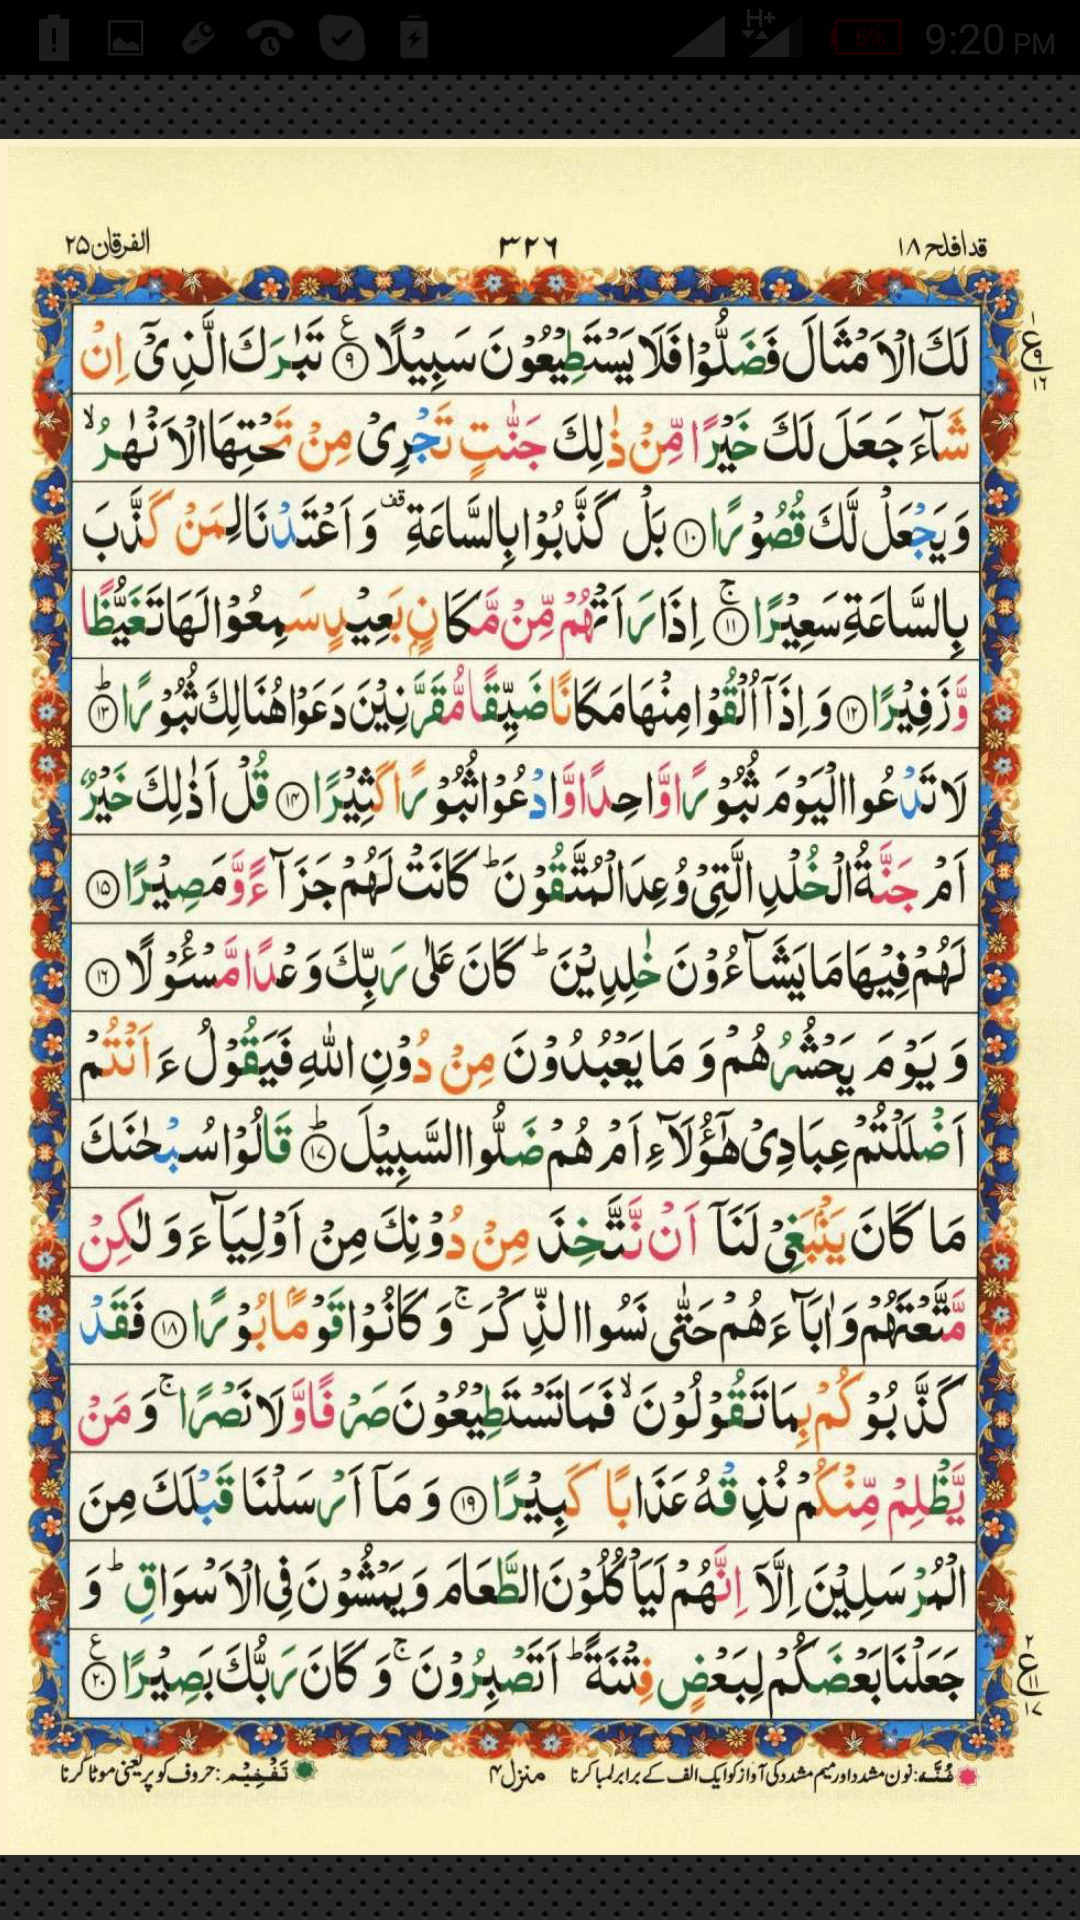 H+ 6% 9:20 PM
قد افلح ۱۸ ۳۲۶ الفرقان ۲۵
لَكَ الْاَمْثَالَ فَضَلُّوْا فَلَا يَسْتَطِيْعُوْنَ سَبِيْلًا ۹ ع تَبٰرَكَ الَّذِىْۤ اِنْ
ع ۱ ۹ ۱۶
شَآءَ جَعَلَ لَكَ خَيْرًا مِّنْ ذٰلِكَ جَنّٰتٍ تَجْرِىْ مِنْ تَحْتِهَا الْاَنْهٰرُ ۙ
وَيَجْعَلْ لَّكَ قُصُوْرًا ۱۰ بَلْ كَذَّبُوْا بِالسَّاعَةِ قف وَاَعْتَدْنَا لِمَنْ كَذَّبَ
بِالسَّاعَةِ سَعِيْرًا ۱۱ ۚ اِذَا رَاَتْهُمْ مِّنْ مَّكَانٍۭ بَعِيْدٍ سَمِعُوْا لَهَا تَغَيُّظًا
وَّزَفِيْرًا ۱۲ وَاِذَاۤ اُلْقُوْا مِنْهَا مَكَانًا ضَيِّقًا مُّقَرَّنِيْنَ دَعَوْا هُنَالِكَ ثُبُوْرًا ۱۳ ؕ
لَا تَدْعُوا الْيَوْمَ ثُبُوْرًا وَّاحِدًا وَّادْعُوْا ثُبُوْرًا كَثِيْرًا ۱۴ قُلْ اَذٰلِكَ خَيْرٌ
اَمْ جَنَّةُ الْخُلْدِ الَّتِىْ وُعِدَ الْمُتَّقُوْنَ ؕ كَانَتْ لَهُمْ جَزَآءً وَّمَصِيْرًا ۱۵
لَهُمْ فِيْهَا مَا يَشَآءُوْنَ خٰلِدِيْنَ ؕ كَانَ عَلٰى رَبِّكَ وَعْدًا مَّسْـُٔوْلًا ۱۶
وَيَوْمَ يَحْشُرُهُمْ وَمَا يَعْبُدُوْنَ مِنْ دُوْنِ اللّٰهِ فَيَقُوْلُ ءَاَنْتُمْ
اَضْلَلْتُمْ عِبَادِىْ هٰٓؤُلَآءِ اَمْ هُمْ ضَلُّوا السَّبِيْلَ ۱۷ ؕ قَالُوْا سُبْحٰنَكَ
مَا كَانَ يَنْۢبَغِىْ لَنَاۤ اَنْ نَّتَّخِذَ مِنْ دُوْنِكَ مِنْ اَوْلِيَآءَ وَلٰكِنْ
مَّتَّعْتَهُمْ وَاٰبَآءَهُمْ حَتّٰى نَسُوا الذِّكْرَ ۚ وَكَانُوْا قَوْمًۢا بُوْرًا ۱۸ فَقَدْ
كَذَّبُوْكُمْ بِمَا تَقُوْلُوْنَ ۙ فَمَا تَسْتَطِيْعُوْنَ صَرْفًا وَّلَا نَصْرًا ۚ وَمَنْ
يَّظْلِمْ مِّنْكُمْ نُذِقْهُ عَذَابًا كَبِيْرًا ۱۹ وَمَاۤ اَرْسَلْنَا قَبْلَكَ مِنَ
الْمُرْسَلِيْنَ اِلَّاۤ اِنَّهُمْ لَيَاْكُلُوْنَ الطَّعَامَ وَيَمْشُوْنَ فِى الْاَسْوَاقِ ؕ وَ
جَعَلْنَا بَعْضَكُمْ لِبَعْضٍ فِتْنَةً ؕ اَتَصْبِرُوْنَ ۚ وَكَانَ رَبُّكَ بَصِيْرًا ۲۰ ع
ع ۲ ۱۱ ۱۷
غُنَّہ: نون مشدد اور میم مشدد کی آواز کو ایک الف کے برابر لمبا کرنا منزل ۴ تَفْخِیْم: حروف کو پُر یعنی موٹا کرنا